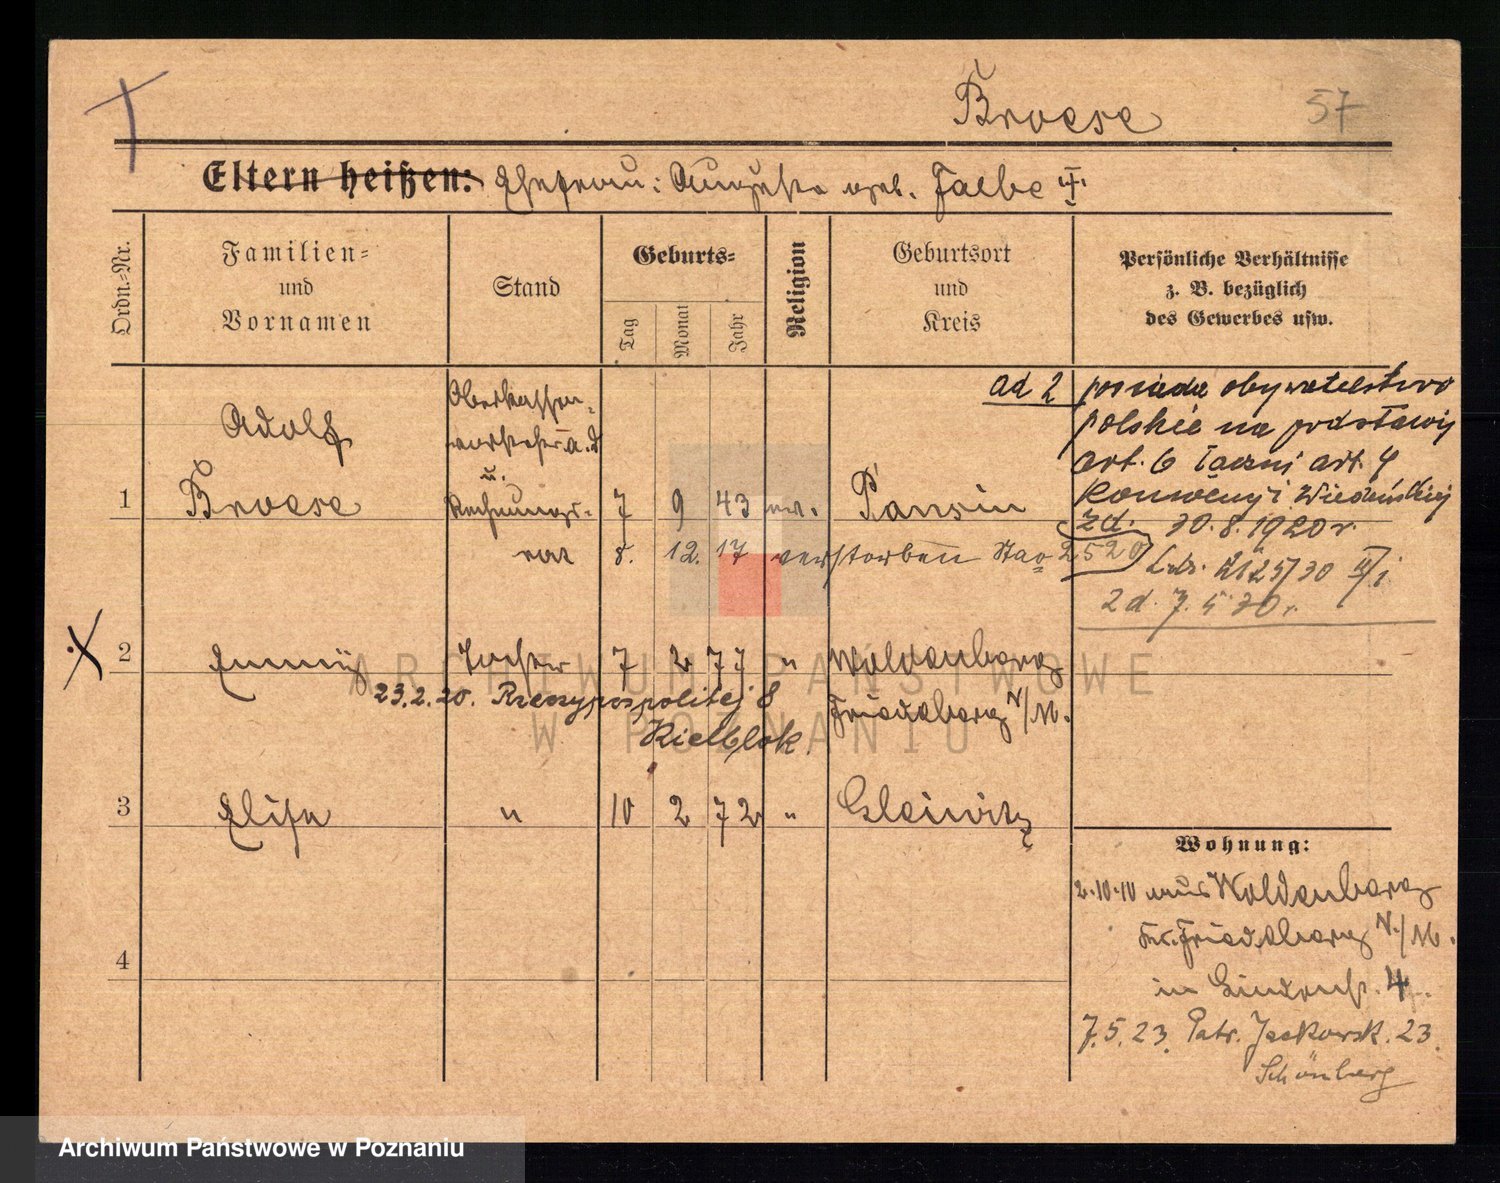 Broese 57
Eltern heißen: Ehefrau: Auguste geb. Falbe †
Ordn.-Nr.
Familien-
und
Vornamen
Stand
Geburts-
Tag
Monat
Jahr
Religion
Geburtsort
und
Kreis
Persönliche Verhältnisse
z. B. bezüglich
des Gewerbes usw.
1
Adolf
Broese
Oberkassen-
vorsteher a. D.
u.
Rechnungs-
rat
7 9 43 ev. Pansin
8. 12. 17 verstorben Sta 2520
ad 2 posiada obywatelstwo
polskie na podstawie
art. 6 łącznie art. 4
Konwencji Wiedeńskiej
zd. 30.8.1920 r.
L.dz. 2125/30 II/i
zd. 7.5.30 r.
2 Emmy Tochter 7 2 77 " Woldenberg
Friedeberg N/M.
23.2.20. Rzeczypospolitej 8
Kielblok.
3 Elise " 10 2 72 " Gleiwitz
4
Wohnung:
2.10.10 aus Woldenberg
Kr. Friedeberg N./M.
in Lindenstr. 4.
7.5.23. Patr. Jackowsk. 23.
Schönberg
ARCHIWUM PAŃSTWOWE
W POZNANIU
Archiwum Państwowe w Poznaniu